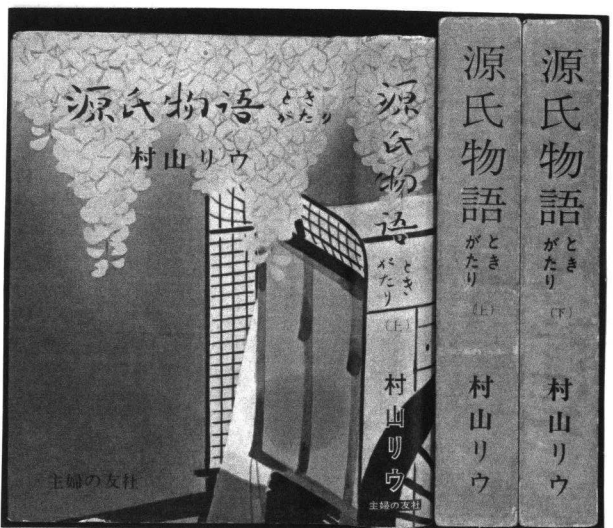 源氏物語 ときがたり
村山リウ
主婦の友社
源氏物語 ときがたり
(上)
村山リウ
主婦の友社
源氏物語 ときがたり
(上)
村山リウ
源氏物語 ときがたり
(下)
村山リウ